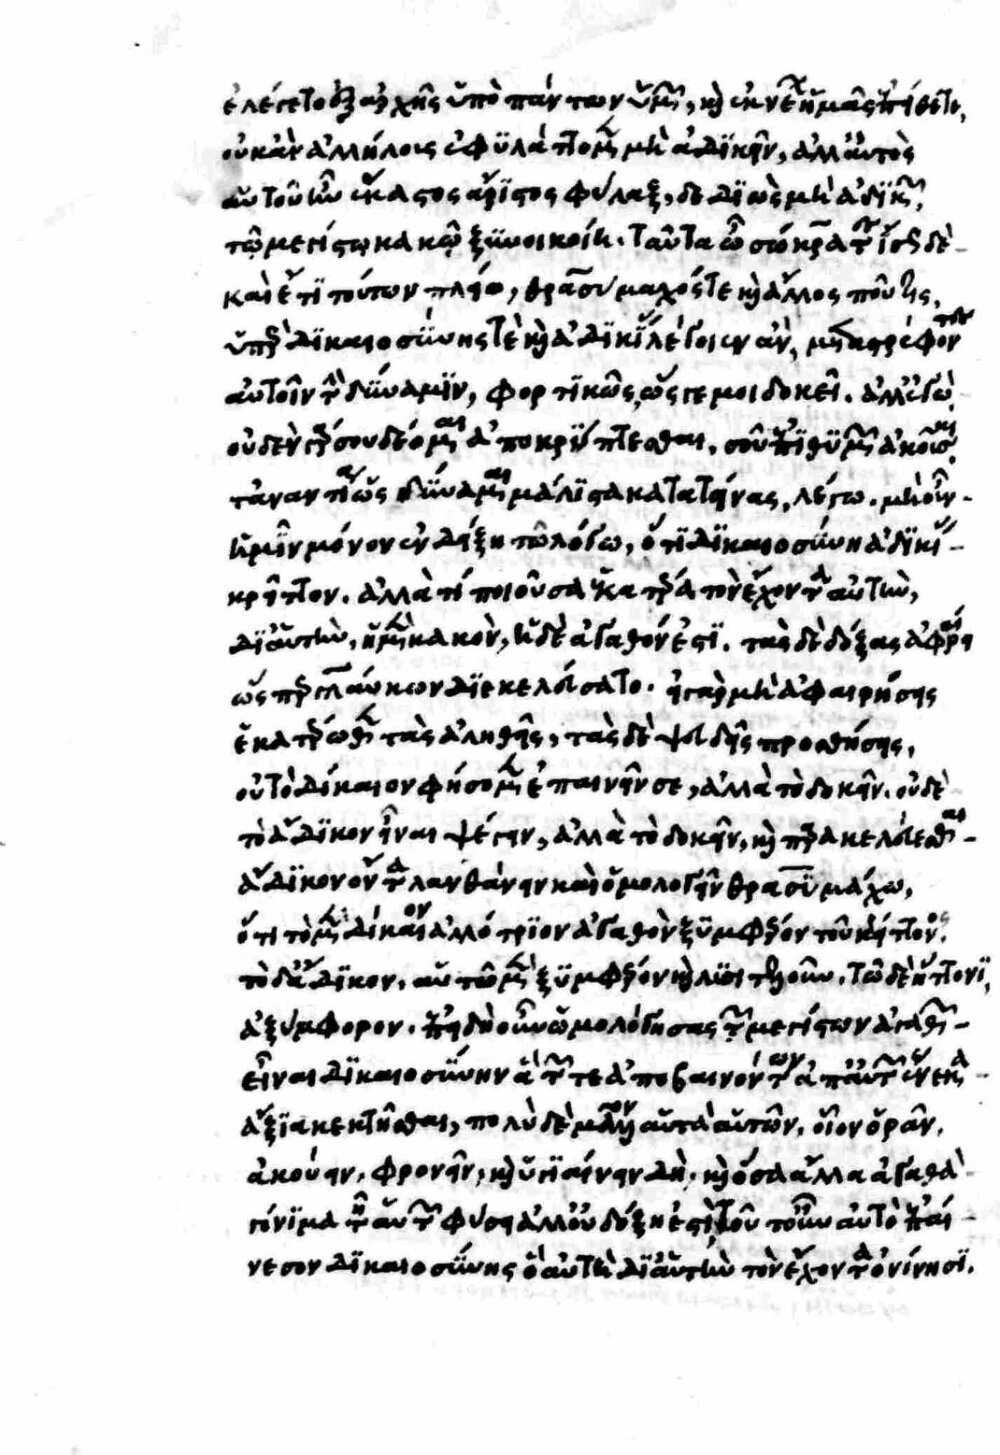 ἐλέγετο ἐξ ἀρχῆς ὑπὸ πάντων ὑμῶν, καὶ ἐκ νέων ἡμᾶς ἐπείθετε,
οὐκ ἂν ἀλλήλους ἐφυλάττομεν μὴ ἀδικεῖν, ἀλλ' αὐτὸς
αὑτοῦ ἦν ἕκαστος ἄριστος φύλαξ, δεδιὼς μὴ ἀδικῶν,
τῷ μεγίστῳ κακῷ ξύνοικος ᾖ. ταῦτα ὦ σώκρατες ἴσως δὲ
καὶ ἔτι τούτων πλείω, θρασύμαχός τε καὶ ἄλλος πού τις,
ὑπὲρ δικαιοσύνης τὲ καὶ ἀδικίας λέγοιεν ἂν, μεταστρέφοντες
αὐτοῖν τὴν δύναμιν, φορτικῶς, ὥς γέ μοι δοκεῖ. ἀλλ' ἐγὼ
οὐδὲν γάρ σου δέομαι ἀποκρύπτεσθαι, σοῦ ἐπιθυμῶν ἀκοῦσαι
τἀναντία, ὡς δύναμαι μάλιστα κατατείνας, λέγω. μὴ οὖν
ἡμῖν μόνον ἐνδείξῃ τῷ λόγω, ὅτι δικαιοσύνη ἀδικίας
κρεῖττον. ἀλλὰ τί ποιοῦσα ἑκατέρα τὸν ἔχοντα αὐτὴ,
δι' αὑτὴν, ἡ μὲν κακὸν, ἡ δὲ ἀγαθόν ἐστι. τὰς δὲ δόξας ἀφαίρει
ὥσπερ γλαύκων διεκελεύσατο. εἰ γὰρ μὴ ἀφαιρήσεις
ἑκατέρωθεν τὰς ἀληθεῖς, τὰς δὲ ψευδεῖς προσθήσεις,
οὐ τὸ δίκαιον φήσομεν ἐπαινεῖν σε, ἀλλὰ τὸ δοκεῖν. οὐδὲ
τὸ ἄδικον εἶναι ψέγειν, ἀλλὰ τὸ δοκεῖν, καὶ παρακελεύεσθαι
ἄδικον ὄντα λανθάνειν καὶ ὁμολογεῖν θρασυμάχω,
ὅτι τὸ μὲν δίκαιον ἀλλότριον ἀγαθὸν ξυμφέρον τοῦ κρείττονος.
τὸ δ' ἄδικον, αὑτῷ μὲν ξυμφέρον καὶ λυσιτελοῦν. τῷ δὲ ἥττονι,
ἀξύμφορον. ἐπειδὴ οὖν ὡμολόγησας τῶν μεγίστων ἀγαθῶν
εἶναι δικαιοσύνην ἃ τῶν τε ἀποβαινόντων ἀπ' αὐτῶν ἕνεκα
ἄξια κεκτῆσθαι, πολὺ δὲ μᾶλλον αὐτὰ αὑτῶν. οἷον ὁρᾶν,
ἀκούειν, φρονεῖν, καὶ ὑγιαίνειν δὴ. καὶ ὅσα ἄλλα ἀγαθὰ
γόνιμα τῇ αὑτῶν φύσει ἀλλ' οὐ δόξῃ ἐστὶ, τοῦτ' οὖν αὐτὸ ἐπαί-
νεσον δικαιοσύνης ὃ αὐτὴ δι' αὑτὴν τὸν ἔχοντα ὀνίνησι.